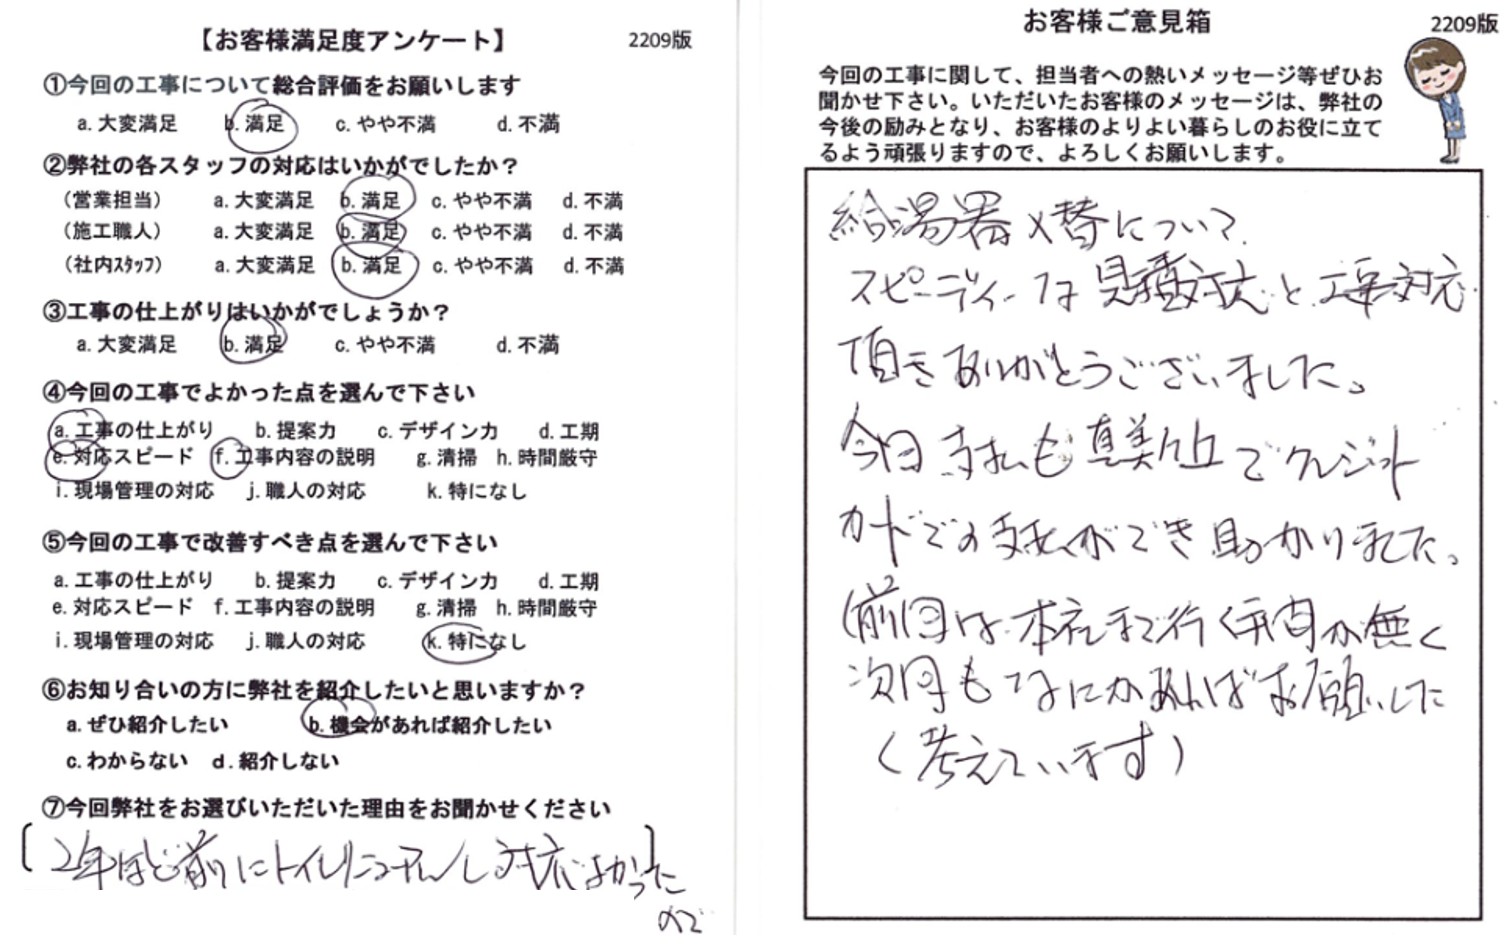 【お客様満足度アンケート】 2209版
①今回の工事について総合評価をお願いします
a. 大変満足 b. 満足 c. やや不満 d. 不満
②弊社の各スタッフの対応はいかがでしたか？
（営業担当） a. 大変満足 b. 満足 c. やや不満 d. 不満
（施工職人） a. 大変満足 b. 満足 c. やや不満 d. 不満
（社内ｽﾀｯﾌ） a. 大変満足 b. 満足 c. やや不満 d. 不満
③工事の仕上がりはいかがでしょうか？
a. 大変満足 b. 満足 c. やや不満 d. 不満
④今回の工事でよかった点を選んで下さい
a. 工事の仕上がり b. 提案力 c. デザイン力 d. 工期
e. 対応スピード f. 工事内容の説明 g. 清掃 h. 時間厳守
i. 現場管理の対応 j. 職人の対応 k. 特になし
⑤今回の工事で改善すべき点を選んで下さい
a. 工事の仕上がり b. 提案力 c. デザイン力 d. 工期
e. 対応スピード f. 工事内容の説明 g. 清掃 h. 時間厳守
i. 現場管理の対応 j. 職人の対応 k. 特になし
⑥お知り合いの方に弊社を紹介したいと思いますか？
a. ぜひ紹介したい b. 機会があれば紹介したい
c. わからない d. 紹介しない
⑦今回弊社をお選びいただいた理由をお聞かせください
2年ほど前にトイレリニューアルし対応よかった
ので
お客様ご意見箱 2209版
今回の工事に関して、担当者への熱いメッセージ等ぜひお
聞かせ下さい。いただいたお客様のメッセージは、弊社の
今後の励みとなり、お客様のよりよい暮らしのお役に立て
るよう頑張りますので、よろしくお願いします。
給湯器 替について
スピーディーな見積対応と工事対応
頂きありがとうございました。
今回支払も真美ヶ丘でクレジット
カードでの支払ができ助かりました。
(前回は本社まで行く 無く
次回もなにかあればお願いした
(考えています)